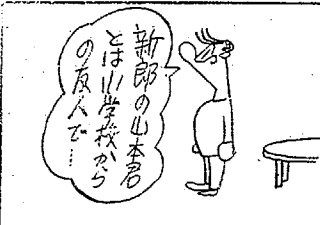 新郎の山本君
とは小学校から
の友人で…